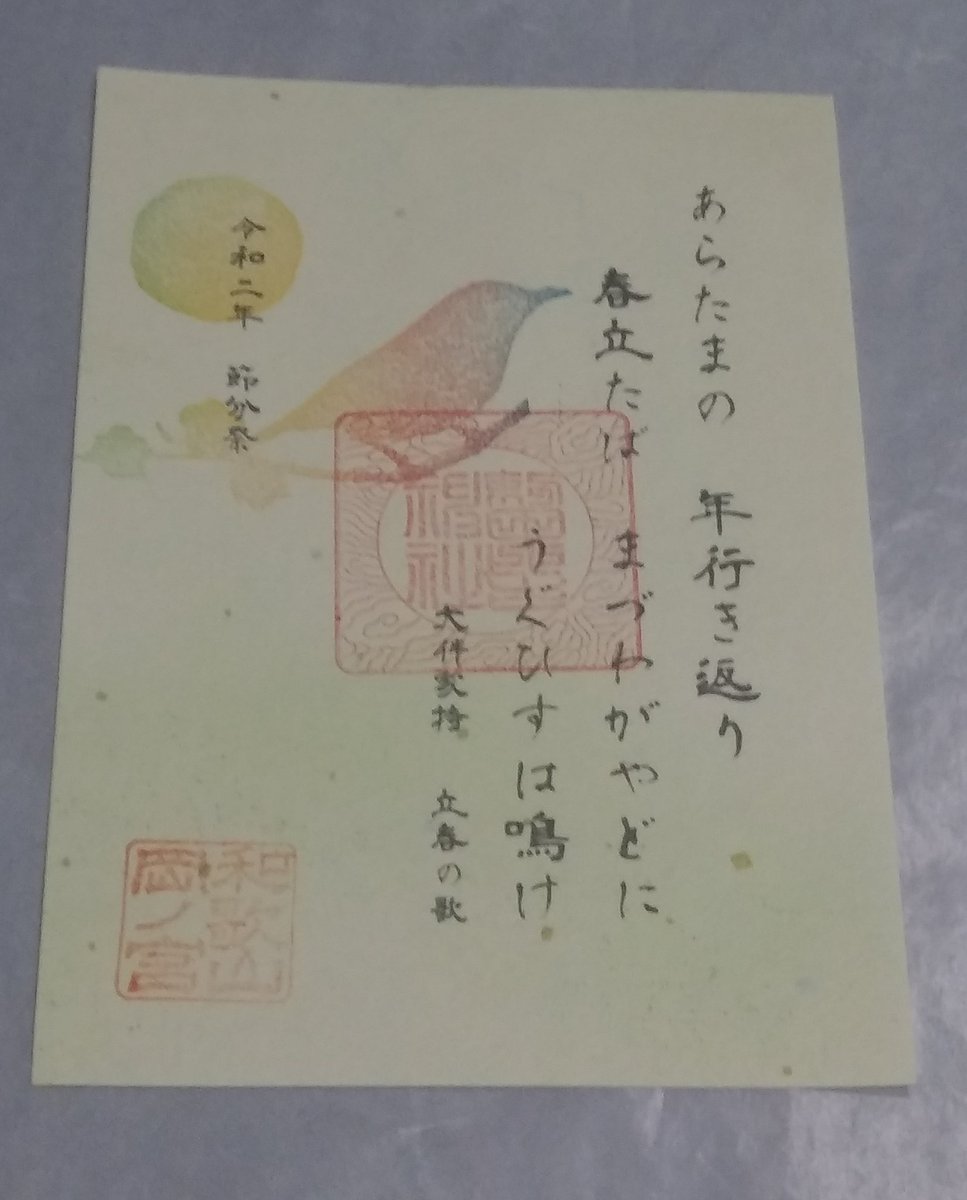 あらたまの 年行き返り
春立たば まづわがやどに
うぐひすは鳴け
大伴家持 立春の歌
令和二年 節分祭
神社
和歌山
岡ノ宮